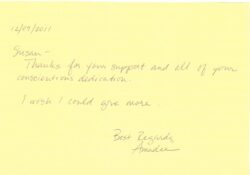 12/09/2011
Susan -
Thanks for your support and all of your
conscientious dedication.
I wish I could give more.
Best Regards